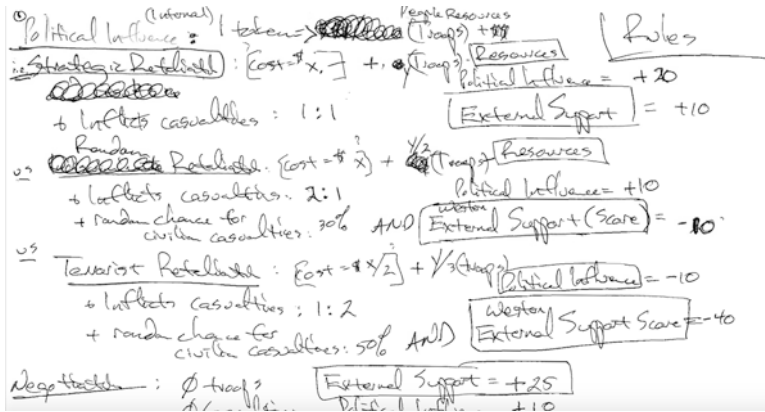 (Internal) People Resources
① Political Influence : 1 token => (Troops) + Rules
i.e. Strategic Retaliation : [cost = $ x, ] + (Troops). Resources
Political Influence = +20
+ Inflicts casualties : 1:1 External Support = +10
Random
vs Retaliation : [cost = $ x] + 1/2 (Troops) Resources
+ Inflicts casualties : 2:1 Political Influence = +10
+ random chance for civilian casualties : 30% AND Western External Support (Score) = -10
vs Terrorist Retaliation : [cost = $ x/2] + 1/3 (troops) Political Influence = -10
+ Inflicts casualties : 1:2
+ random chance for civilian casualties : 50% AND Western External Support Score = -40
Negotiation : Ø troops External Support = +25
Political +10